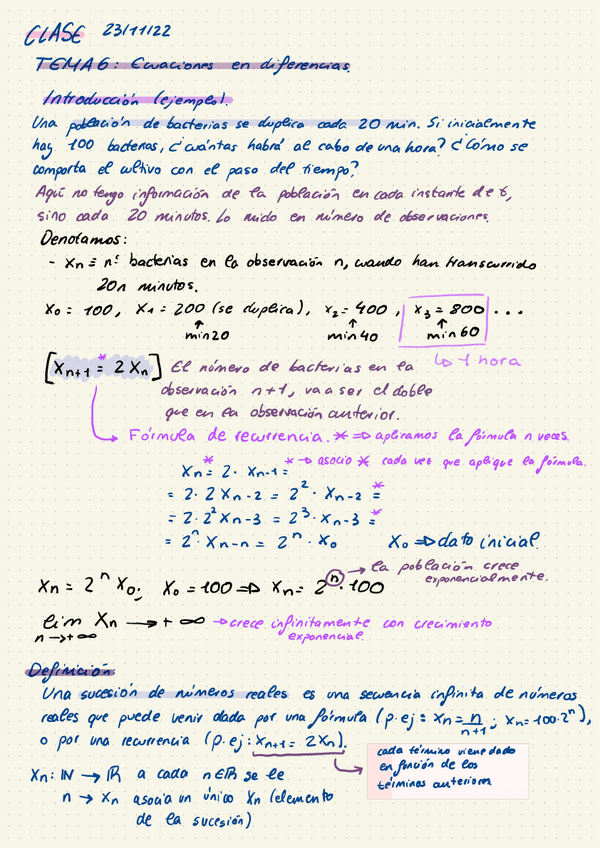 CLASE 23/11/22
TEMA 6: Ecuaciones en diferencias.
Introducción (ejemplo).
Una población de bacterias se duplica cada 20 min. Si inicialmente
hay 100 bacterias, ¿cuántas habrá al cabo de una hora? ¿Cómo se
comporta el cultivo con el paso del tiempo?
Aquí no tengo información de la población en cada instante de t,
sino cada 20 minutos. Lo mido en número de observaciones.
Denotamos:
- Xn ≡ nº bacterias en la observación n, cuando han transcurrido
20n minutos.
X0 = 100, X1 = 200 (se duplica), X2 = 400, X3 = 800 ...
↑ min 20 ↑ min 40 ↑ min 60
↳ 1 hora
[Xn+1 =* 2 Xn] El número de bacterias en la
observación n+1, va a ser el doble
que en la observación anterior.
→ Fórmula de recurrencia. * ⇒ aplicamos la fórmula n veces.
Xn =* 2· Xn-1 =* → asocio * cada vez que aplique la fórmula.
= 2· 2 Xn-2 = 2²· Xn-2 =*
= 2· 2² Xn-3 = 2³· Xn-3 =*
= 2ⁿ Xn-n = 2ⁿ· X0 X0 ⇒ dato inicial.
Xn = 2ⁿ X0; X0 = 100 ⇒ Xn = 2ⁿ· 100 → la población crece
exponencialmente.
lim Xn → +∞ → crece infinitamente con crecimiento
n→+∞ exponencial.
Definición:
Una sucesión de números reales es una secuencia infinita de números
reales que puede venir dada por una fórmula (p.ej: Xn = n/n+1; Xn = 100·2ⁿ),
o por una recurrencia (p.ej: Xn+1 = 2Xn).
cada término viene dado
en función de los
términos anteriores
Xn: ℕ → ℝ a cada n∈ℝ se le
n → Xn asocia un único Xn (elemento
de la sucesión)